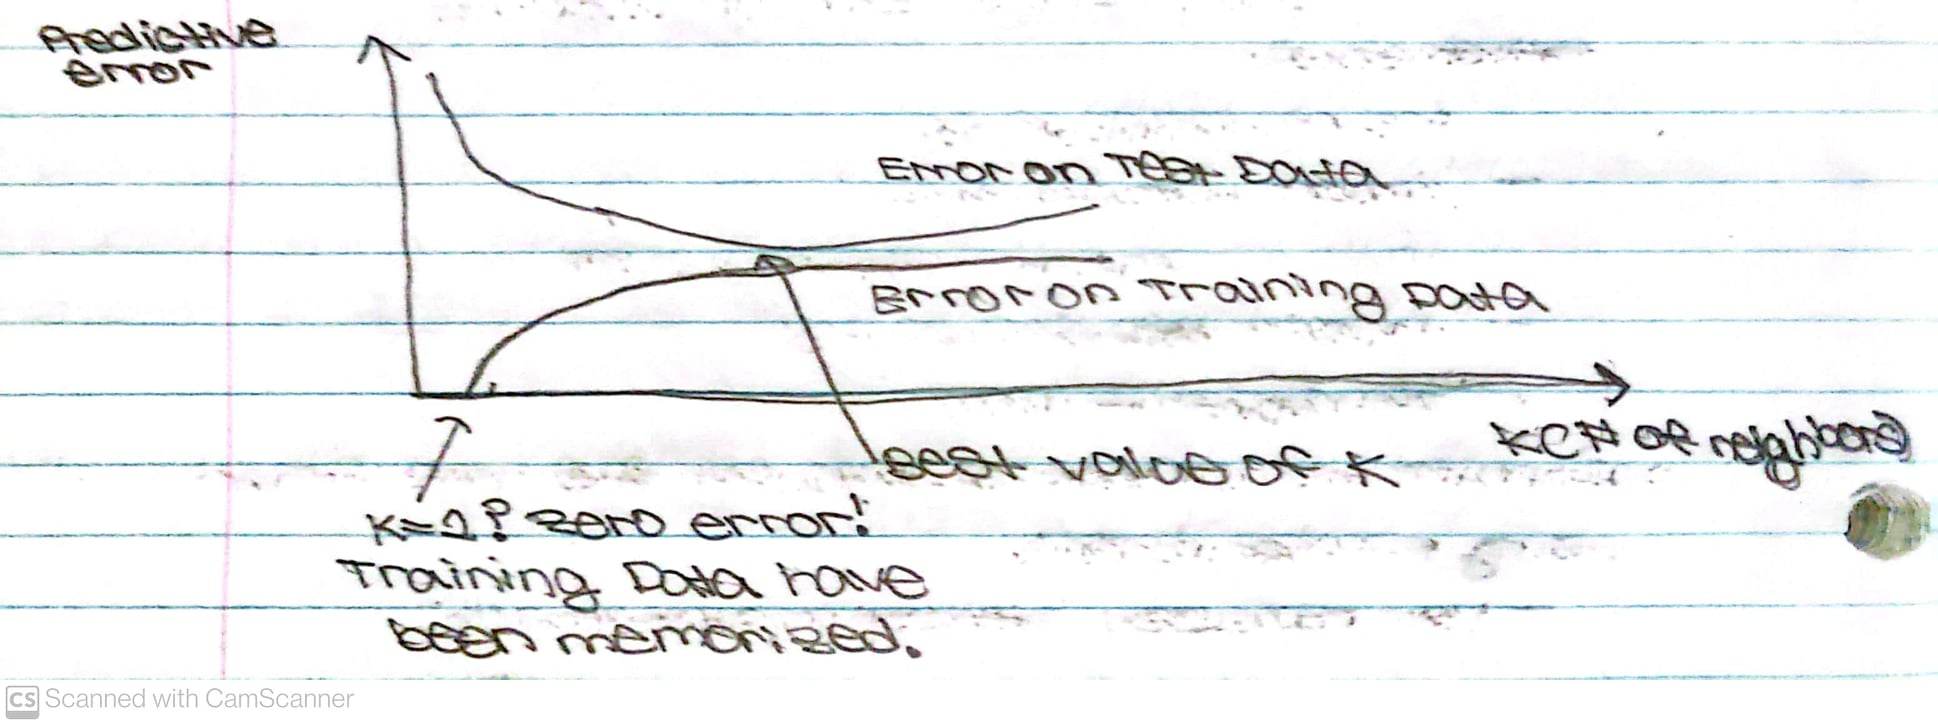 Predictive
error
Error on Test Data
Error on Training Data
K(# of neighbors)
Best value of K
K=1? zero error!
Training Data have
been memorized.
CS Scanned with CamScanner